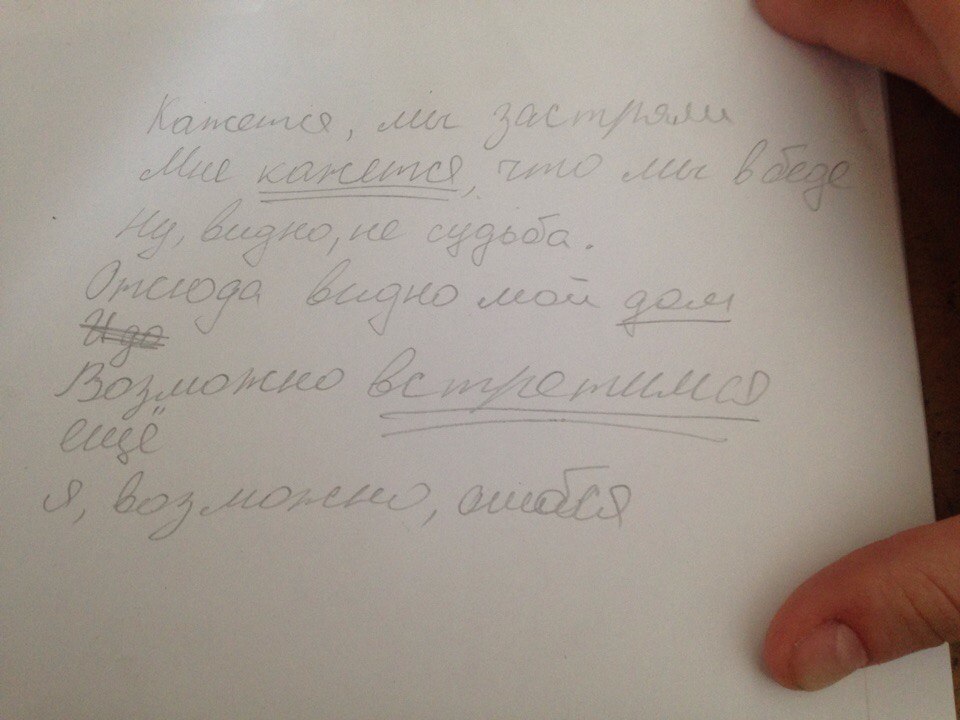 Кажется, мы застряли
Мне кажется, что мы в беде
Ну, видно, не судьба.
Отсюда видно мой дом
И до
Возможно встретимся
ещё
Я, возможно, ошибся